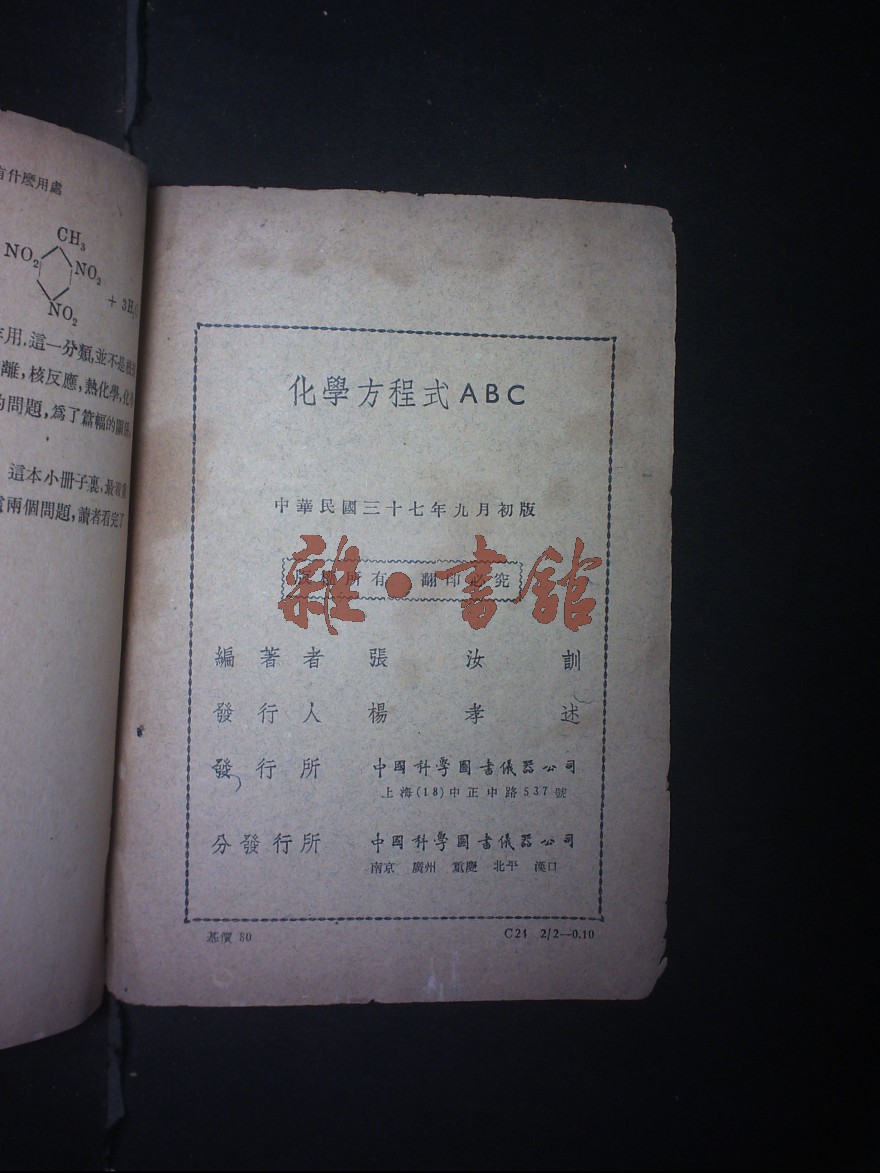 有什麽用處
CH₃
NO₂
NO₂
NO₂
+ 3H₂
用，這一分類，並不是
離，核反應，熱化學，化
的問題，爲了篇幅的關係，
這本小册子裏，最
兩個問題，讀者看完了
化學方程式 ABC
中華民國三十七年九月初版
版權所有 翻印必究
雜·書館
編著者 張汝訓
發行人 楊孝述
發行所 中國科學圖書儀器公司
上海(18)中正中路537號
分發行所 中國科學圖書儀器公司
南京 廣州 重慶 北平 漢口
基價 80 C24 2/2—0.10